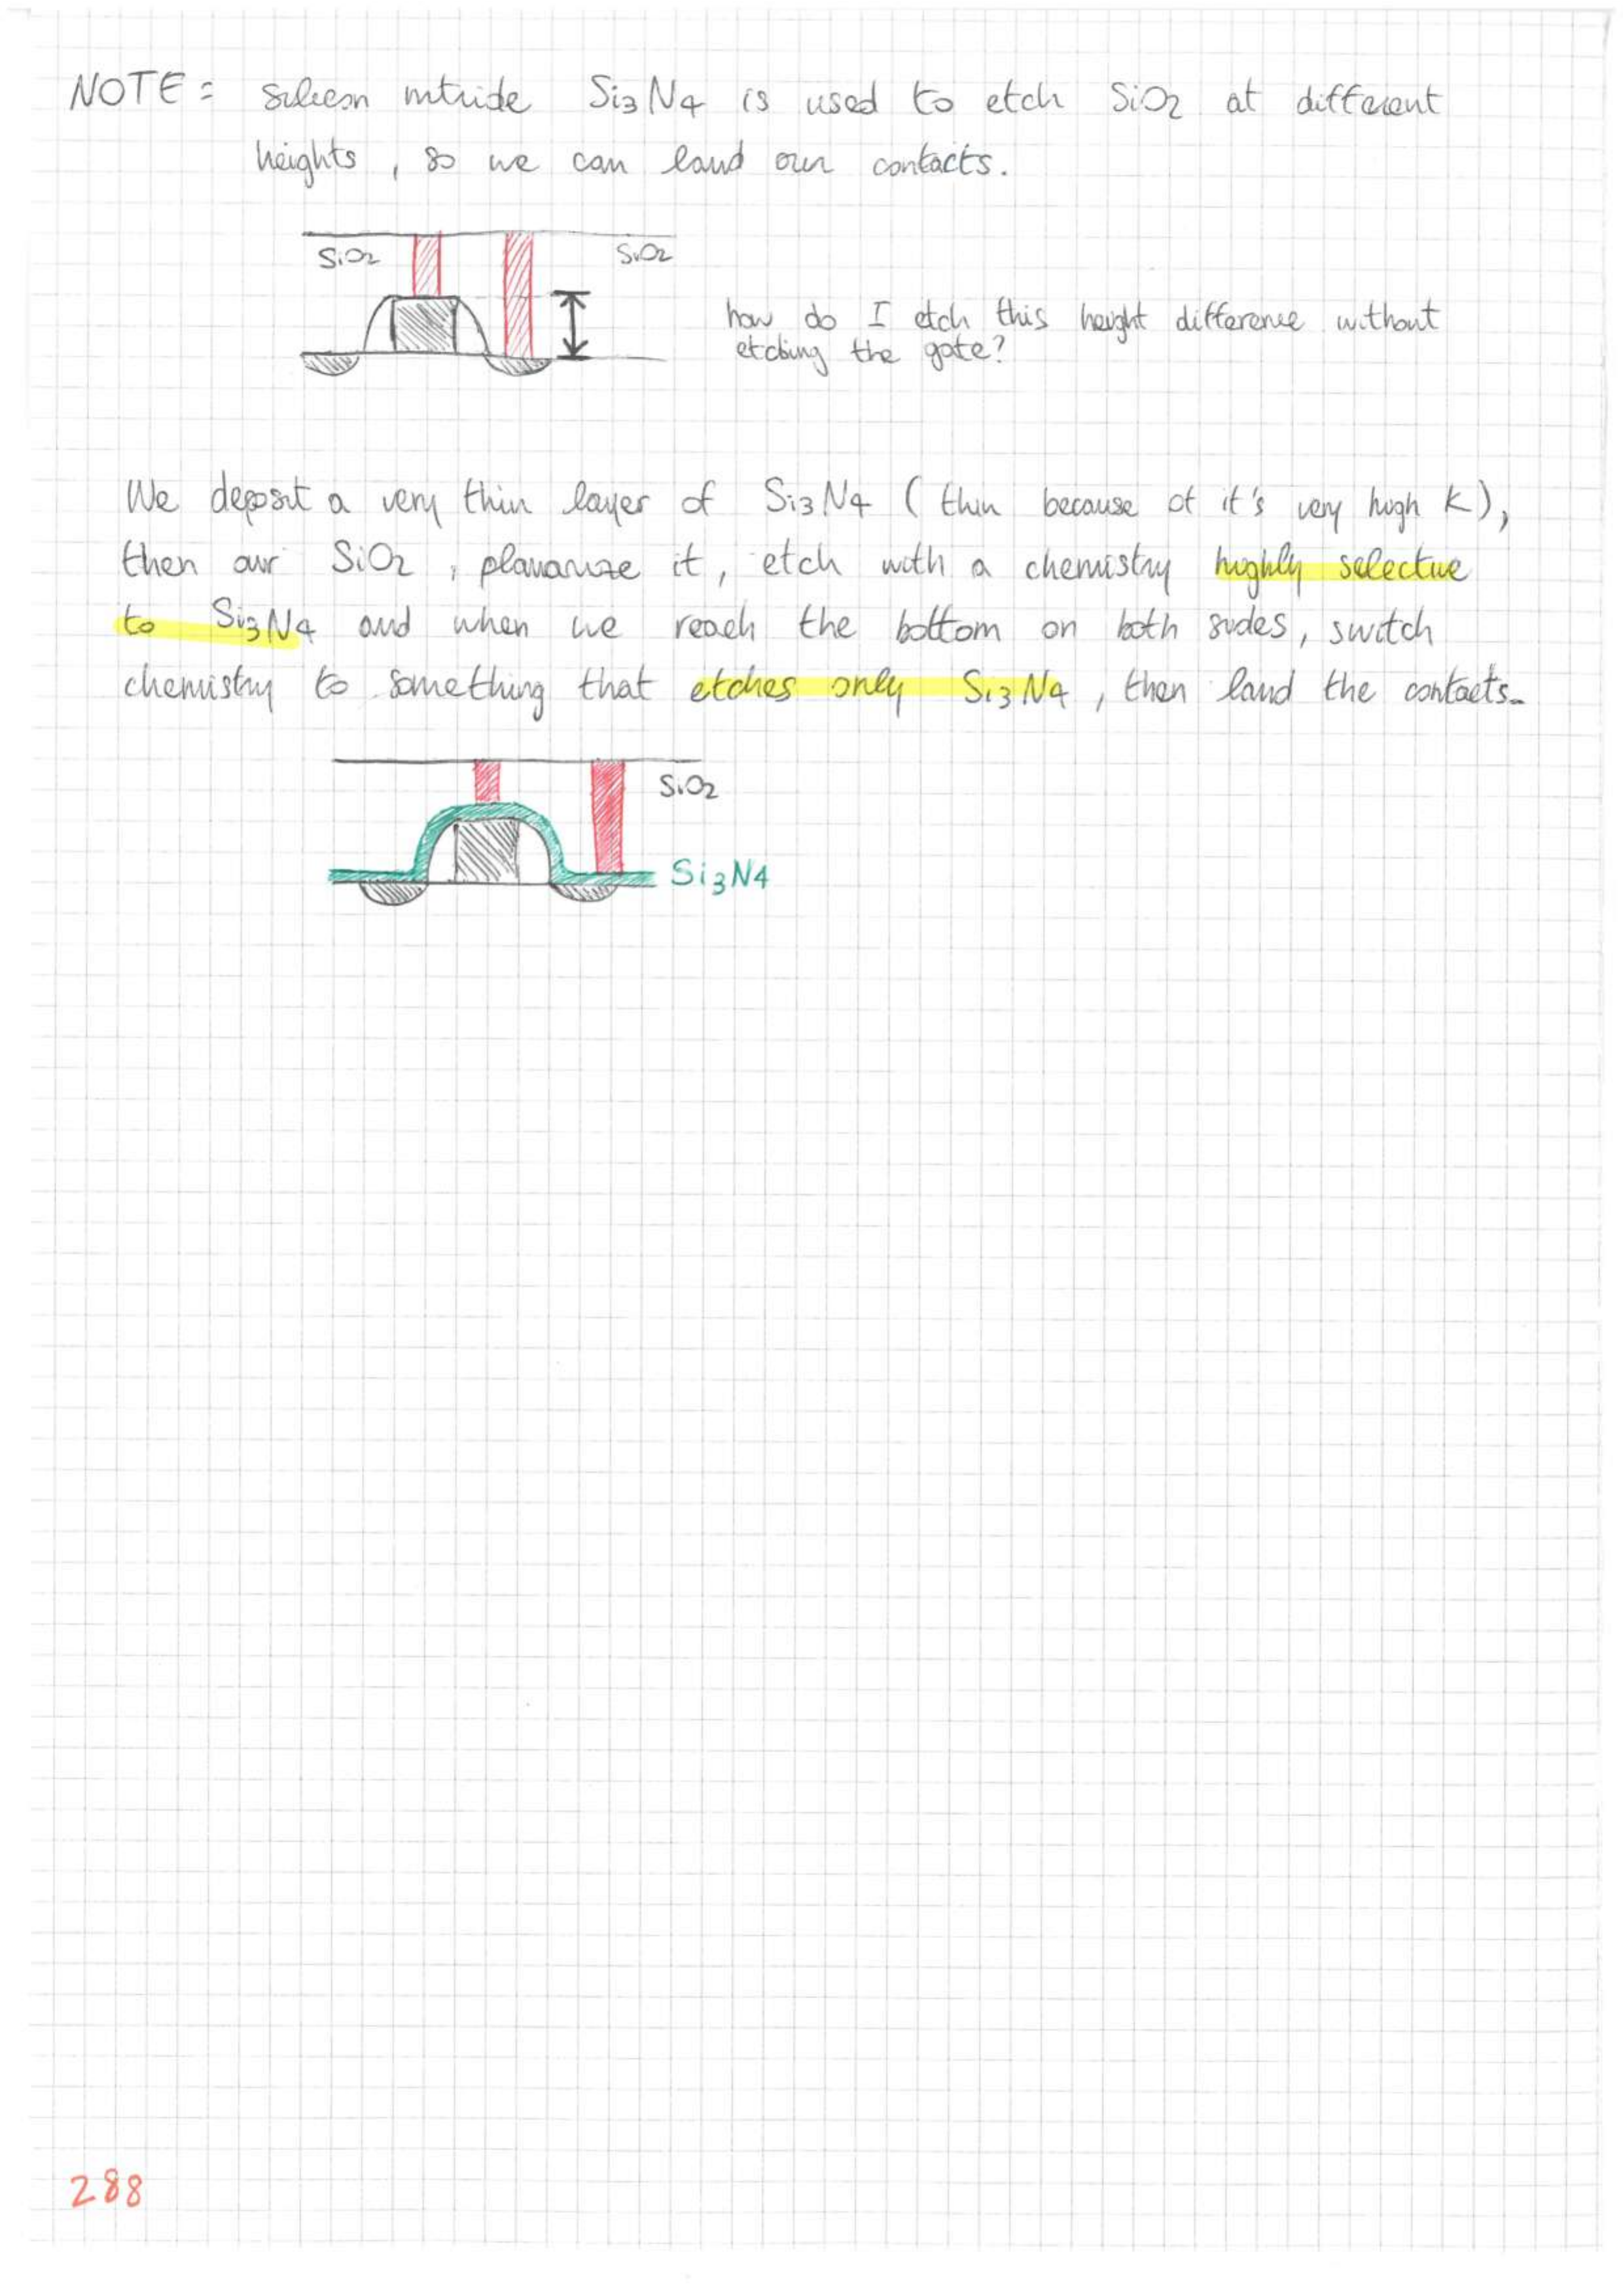 NOTE: silicon nitride Si3N4 is used to etch SiO2 at different
heights, so we can land our contacts.
SiO2 SiO2
how do I etch this height difference without
etching the gate?
We deposit a very thin layer of Si3N4 (thin because of it's very high K),
then our SiO2, planarize it, etch with a chemistry highly selective
to Si3N4 and when we reach the bottom on both sides, switch
chemistry to something that etches only Si3N4, then land the contacts.
SiO2
Si3N4
288